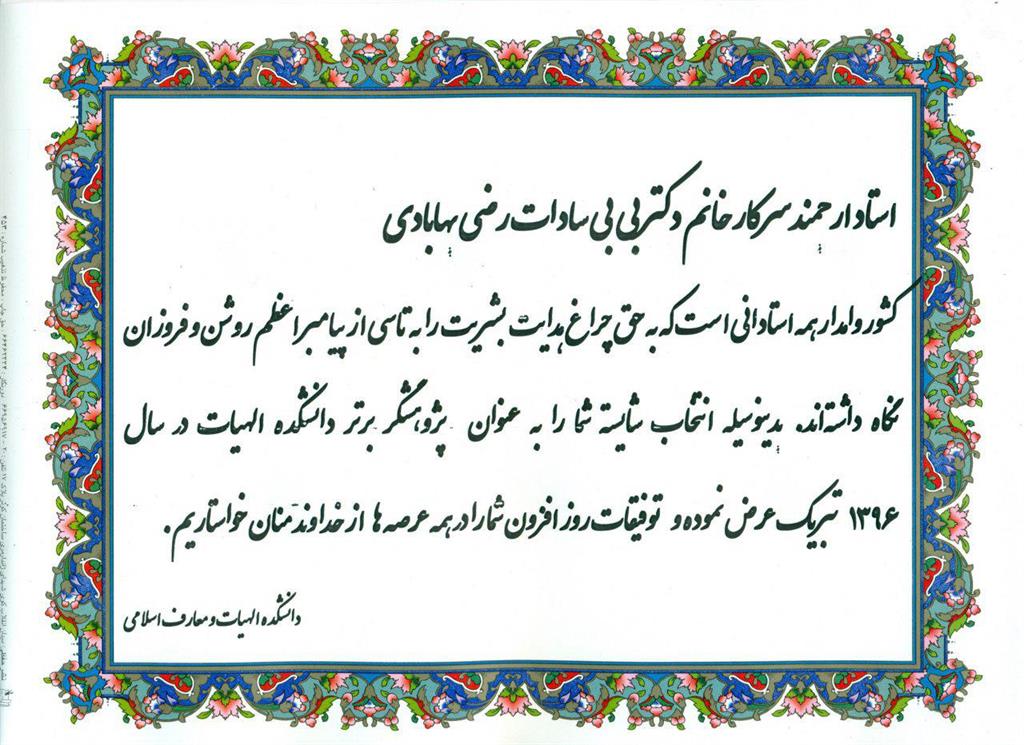 استاد ارجمند سرکار خانم دکتر بی بی سادات رضی بهابادی
کشور وامدار همه استادانی است که به حق چراغ هدایت بشریت را به تاسی از پیامبر اعظم روشن و فروزان
نگاه داشته‌اند. بدینوسیله انتخاب شایسته شما را به عنوان پژوهشگر برتر دانشکده الهیات در سال
۱۳۹۶ تبریک عرض نموده و توفیقات روز افزون شما را در همه عرصه ها از خداوند منان خواستاریم.
دانشکده الهیات و معارف اسلامی